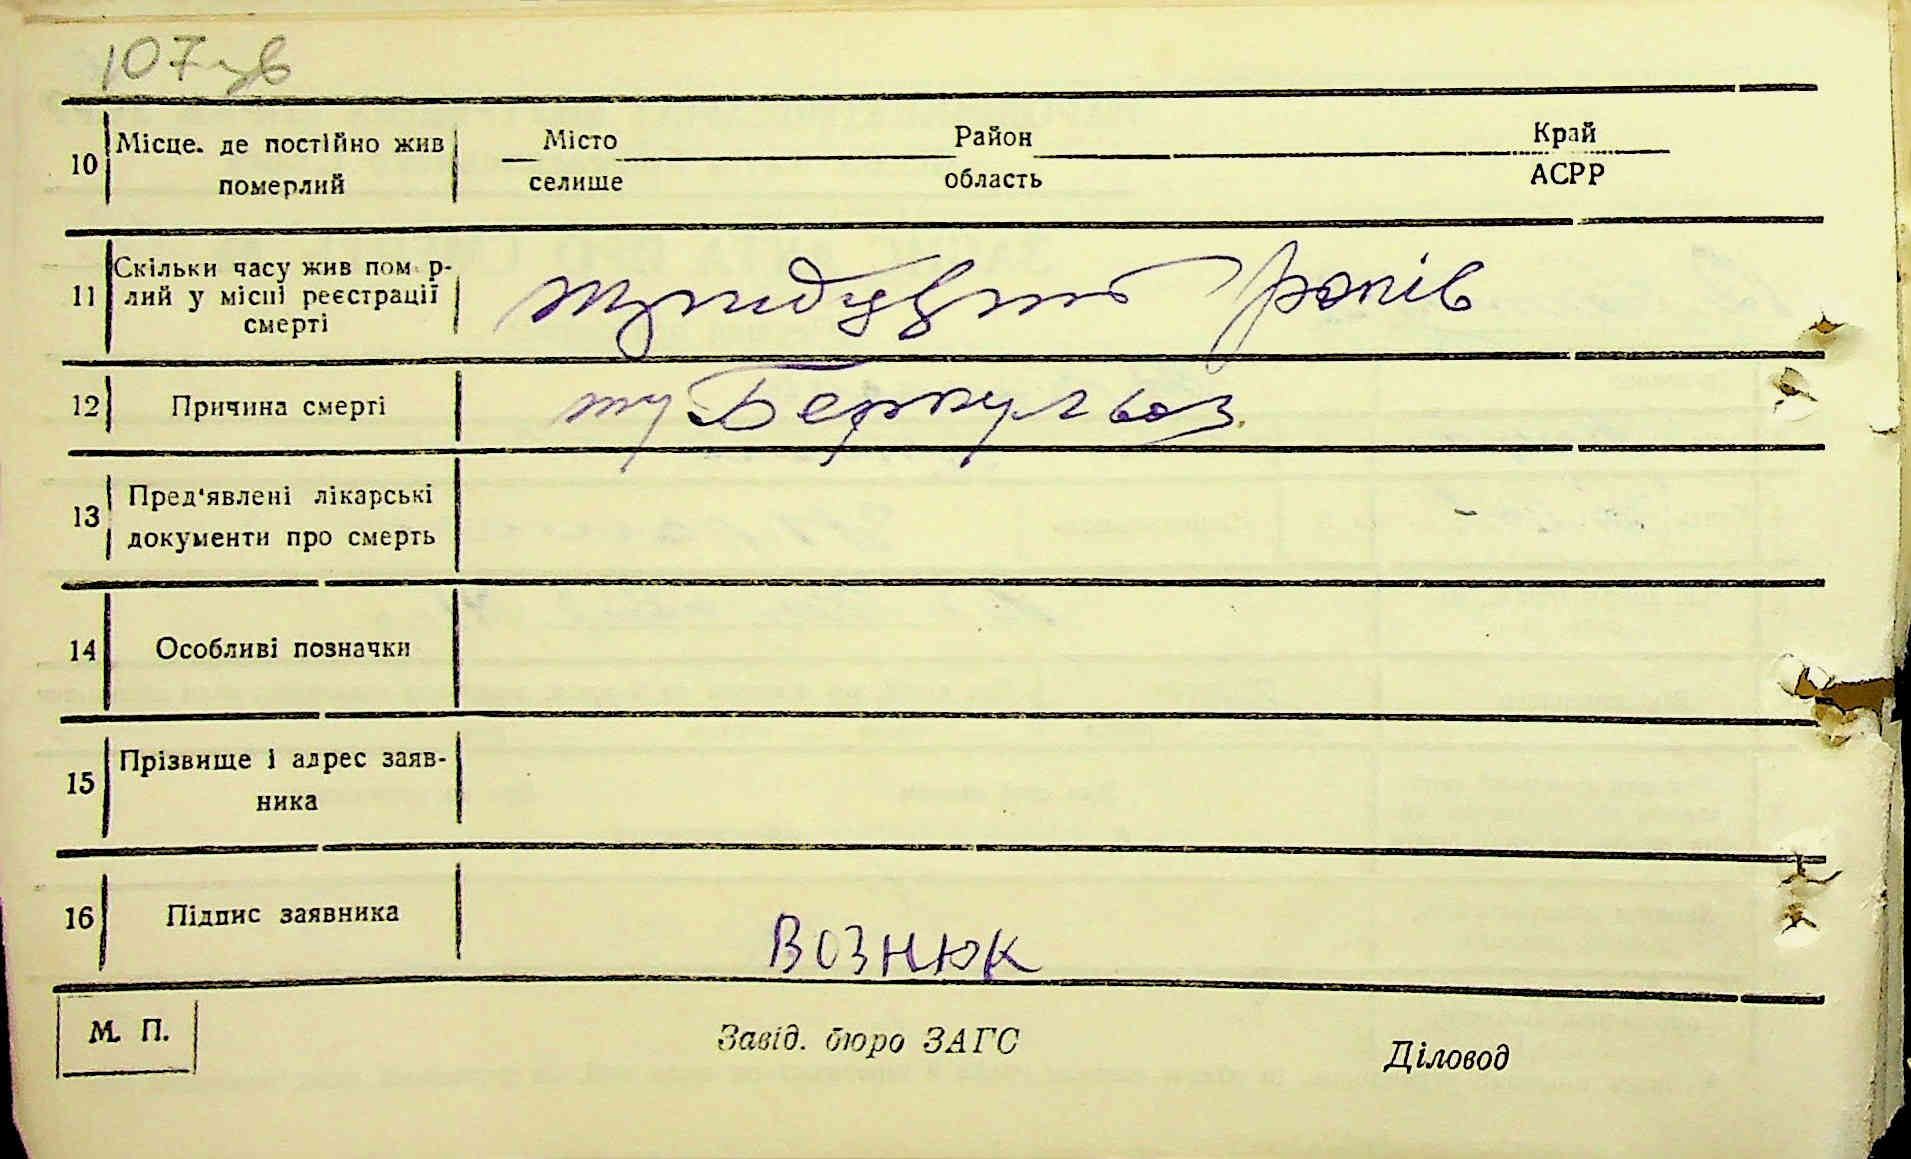 107 зв
10 Місце. де постійно жив померлий
Місто
селище
Район
область
Край
АСРР
11 Скільки часу жив пом р-
лий у місці реєстрації
смерті
років
12 Причина смерті туберкульоз.
13 Пред'явлені лікарські
документи про смерть
14 Особливі позначки
15 Прізвище і адрес заяв-
ника
16 Підпис заявника
Вознюк
М. П.
Завід. бюро ЗАГС
Діловод